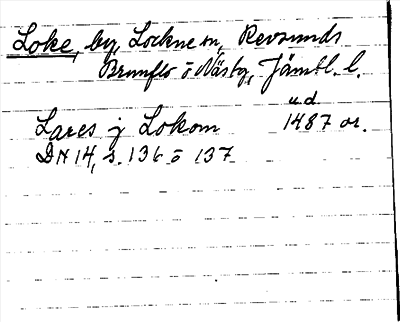 Loke, by, Lockne sn, Revsunds
Brunflo o Näsby, Jämtl. l.
u d
Lares j Lokom 1487 or.
DN 14, s. 136 o 137